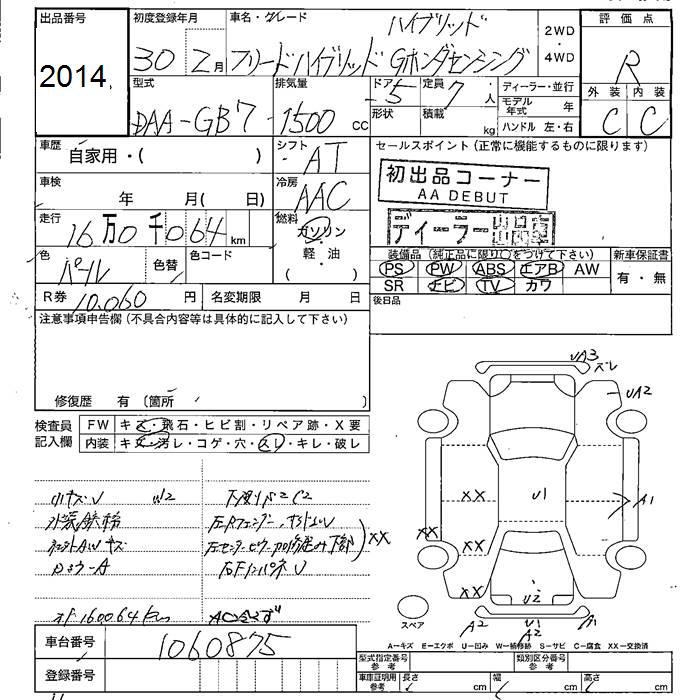 出品番号 初度登録年月 車名・グレード ハイブリッド 2WD・4WD 評価点
2014 30 2月 フリードハイブリッド Gホンダセンシング R
型式 排気量 ドア 5 定員 7人 ディーラー・並行 外装 内装
DAA-GB7 -1500 cc 形状 積載 kg モデル年式 年 C C
ハンドル 左・右
車歴 自家用・( ) シフト AT セールスポイント(正常に機能するものに限ります)
初出品コーナー
AA DEBUT
車検 年 月( 日) 冷房 AAC
ディーラー出品車
走行 16万0千064km 燃料 ガソリン・軽・油( )
装備品(純正品に限り○をつけて下さい) 新車保証書
色 パール 色替 色コード
PS PW ABS エアB AW 有・無
SR ナビ TV カワ
R券 10,060円 名変期限 月 日 後日品
注意事項申告欄(不具合内容等は具体的に記入して下さい)
修復歴 有〔箇所 〕
検査員記入欄 FW キズ・飛石・ヒビ割・リペア跡・X要
内装 キズ・汚レ・コゲ・穴・スレ・キレ・破レ
UA3 ズレ
UA2
XX U1 A1
XX
XX
XX U2
A2 U1 A2 A1
小キズU
スペア
A=キズ E=エクボ U=凹み W=補修跡 S=サビ C=腐食 XX=交換済
車台番号 1060875
登録番号
型式指定番号 参考 類別区分番号 参考
車庫証明用 参考 長さ cm 幅 cm 高さ cm